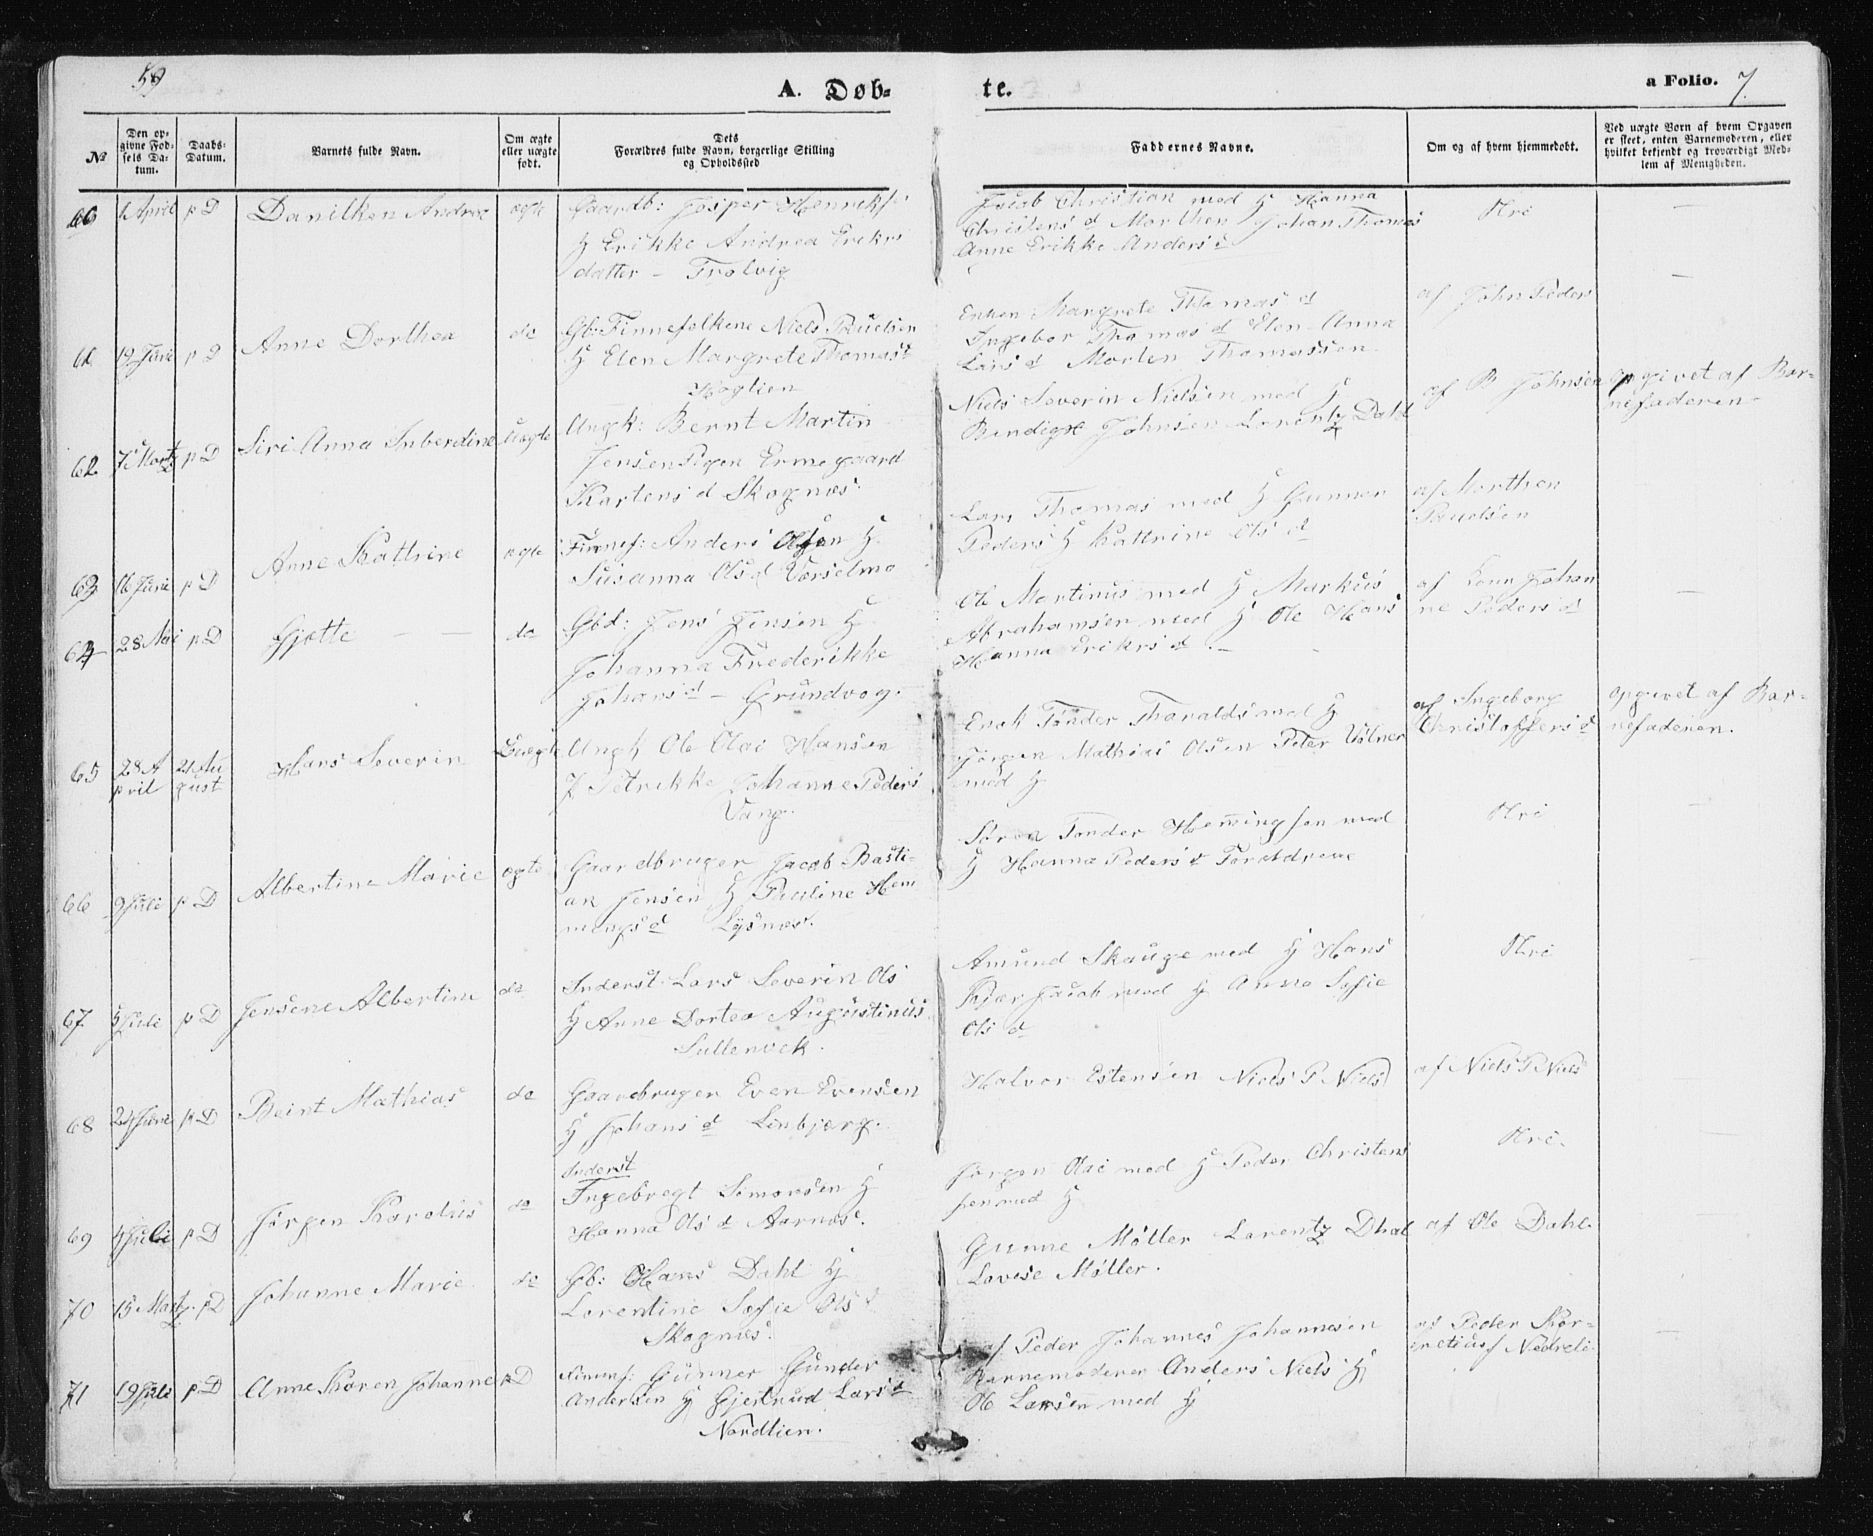 59
A. Døb-
te.
a Folio. 7.
No
Den op-
givne Fød-
sels Da-
tum.
Daabs-
Datum.
Barnets fulde Navn.
Om ægte
eller uægte
født.
Dets
Forældres fulde Navn, borgerlige Stilling
og Opholdssted
Faddernes Navne.
Om og af hvem hjemmedøbt.
Ved uægte Børn af hvem Opgaven
er skeet, enten Barnemoderen, eller
hvilket bekjendt og troværdigt Med-
lem af Menigheden.
60 April p D Danilken Andrea ægte Gaardb: Jesper Henrikss
H Erikke Andrea Eriks
datter – Trolvig
Jacob Christian med H Hanna
Christens d Morthen Johan Thomas
Anne Erikke Anders d
Nei
61 19 Juni p D Anne Dorthea do Gb: Finnefolkene Niels Paulsen
H Elen Margrete Thomas d
Høglien
Enken Margrete Thomas d
Ingebor Thomas d Elen Anna
Lars d Morten Thomassen
af John Peders
62 7 Martz p D Siri Anna Inberdine Uægte Ungk: Bernt Martin
Jensen Pigen Ermegaard
Kartens d Skognæs.
Niels Severin Nielsen med H
Bendigt Johnsen Lorentz Dahl
af B Johnsen
opgivet af Bar-
nefaderen
63 16 Juni p D Anne Kattrine ægte Finnef: Anders Olsen H
Susanna Ols d Værselmo
Lars Thomas med H Gunner
Peders H Kattrine Ols d
af Morthen
Paulsen
64 28 Mai p D Gjøtte do Gbd: Jens Jensen H
Johanna Frederikke
Johans d – Grundvog.
Ole Martinus med H Markus
Abrahamsen med H Ole Hans
Hanna Eriks d.
af Johan
ne Peders d
65 28 A
pril
21 Au
gust
Hans Severin Uægte Ungk Ole Olai Hansen
P Petrikke Johanne Peders
Vang.
Enok Tønder Tharalds med H
Jørgen Mathias Olsen Peter Volner
med H
af Ingeborg
Christoffers d
opgivet af Bar-
nefaderen.
66 9 Juli p D Albertine Marie ægte Gaardbruger Jacob Basti-
an Jensen H Pauline Hem
mings d Lysnæs.
Søren Tønder Hemingsen med
H Hanna Peders d Forældrene
Nei
67 5 Juli p D Jensene Albertine do Inderst: Lars Severin Ols
H Anne Dortea Augustinus
Sultenvek.
Amund Skauge med H Hans
Kjær Jacob med H Anna Sofie
Ols d
Nei
68 24 Juni p D Beint Mathias do Gaardbruger Even Evensen
H Johans d Linbjerg.
Halvor Estensen Niels P Niels
af Niels P Niels
69 4 Juli p D Jørgen Karolus do Inderst
Ingebregt Simonsen H
Hanna Ols d Aarnæs.
Jørgen Olai med H Peder Christens
sen med H
Nei.
70 15 Martz p D Johanne Marie do Gb: Hans Dahl H
Lorentine Sofie Ols d
Skognæs.
Gunne Møller Lorentz Dhal
Lovise Møller.
af Ole Dahl
71 19 Juli p D Anne Karen Johanne p D Finnf: Gunner Gunder
Andersen H Gjertrud Lars d
Nordlien.
af Peder Johannes Johannesen
Barnemoderen Anders Niels H
Ole Larsen med H
af Peder Kor-
netius Nedreli